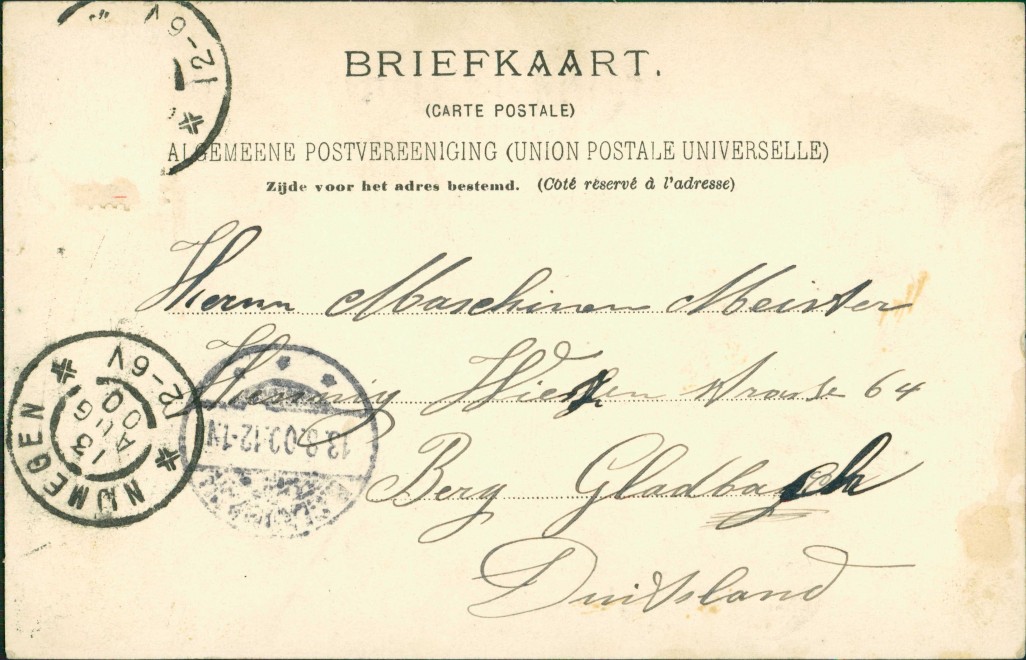 12-6V
BRIEFKAART.
(CARTE POSTALE)
ALGEMEENE POSTVEREENIGING (UNION POSTALE UNIVERSELLE)
Zijde voor het adres bestemd. (Côté réservé à l'adresse)
Herrn Maschinen Meister
Wiesenstrasse 64
Berg Gladbach
Duitsland
NIJMEGEN
12-6V
13
AUG
00
13.8.00.12-1N